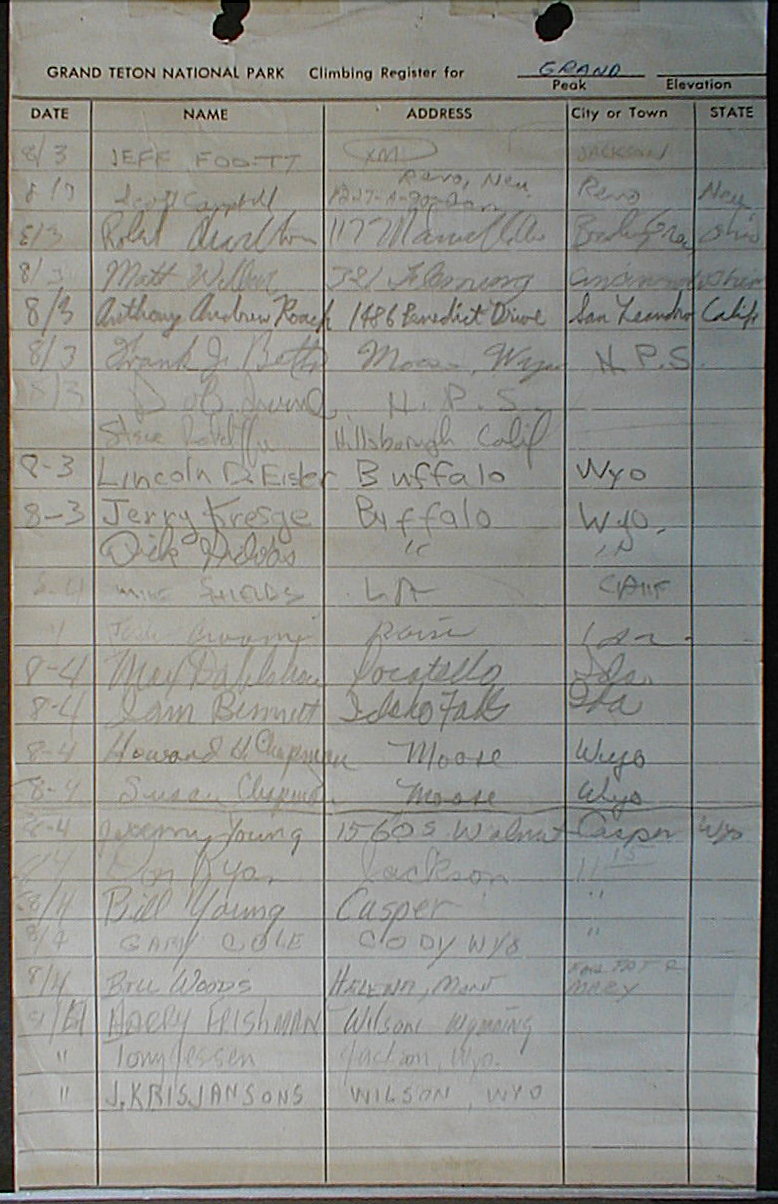 GRAND TETON NATIONAL PARK Climbing Register for GRAND
Peak Elevation
DATE NAME ADDRESS City or Town STATE
8/3 JEFF FOOTT JACKSON
Reno, Nev.
Scott Campbell Reno Nev
8/3 Robt 117 Ohio
8/3 Matt 321 Flemming Ohio
8/3 Anthony Andrew Roach 1486 Benedict Drive San Leandro Calif
8/3 Frank J. Moose, Wyo N.P.S.
8/3 Bob Irvine N.P.S.
Steve Hillsborough Calif
8-3 Lincoln D. Eisler Buffalo Wyo
8-3 Jerry Kresge Buffalo Wyo.
Dick " "
MIKE SHIELDS LA CALIF
8-4 Max Pocatello Ida.
8-4 Sam Bennett Idaho Falls Ida
8-4 Howard H Chapman Moose Wyo
8-4 Susan Chapman Moose Wyo
8-4 Young 1560 S Walnut Casper Wyo
8/4 Don Ryan Jackson "
8/4 Bill Young Casper "
8/4 GARY COLE CODY WYO "
8/4 BILL WOODS HELENA, Mont
MARY
HARRY FRISHMAN Wilson Wyoming
" Tony Jessen Jackson, Wyo.
" J. KRISJANSONS WILSON, WYO